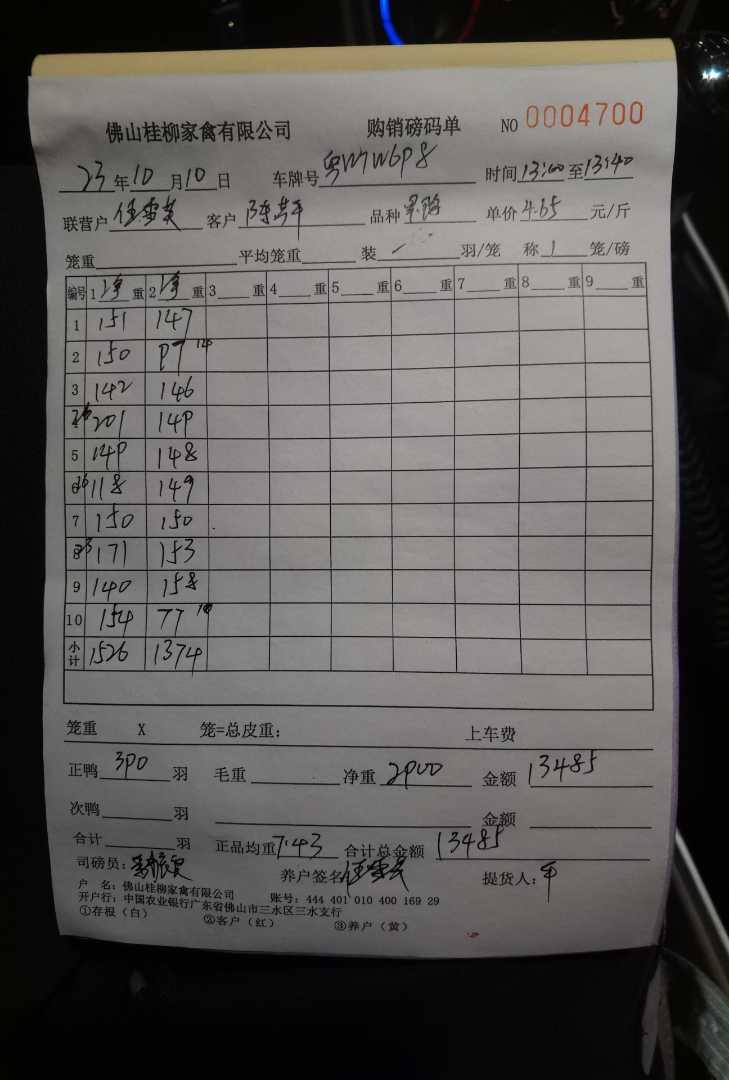 佛山桂柳家禽有限公司 购销磅码单 NO 0004700
23年10月10日 车牌号 粤W7W6P8 时间13:00至13:40
联营户 客户 品种 单价4.65元/斤
笼重 平均笼重 装 羽/笼 称 1 笼/磅
编号 1净重 2净重 3 重 4 重 5 重 6 重 7 重 8 重 9 重
1 151 147
2 150 97
3 142 146
4 201 149
5 149 148
6 118 149
7 150 150
8 171 153
9 140 158
10 154 77
小计 1526 1374
笼重 X 笼=总皮重: 上车费
正鸭 390 羽 毛重 净重 2900 金额 13485
次鸭 羽 金额
合计 羽 正品均重 7.43 合计总金额 13485
司磅员: 养户签名 提货人:
户 名: 佛山桂柳家禽有限公司 账号: 444 401 010 400 169 29
开户行: 中国农业银行广东省佛山市三水区三水支行
①存根(白) ②客户(红) ③养户(黄)